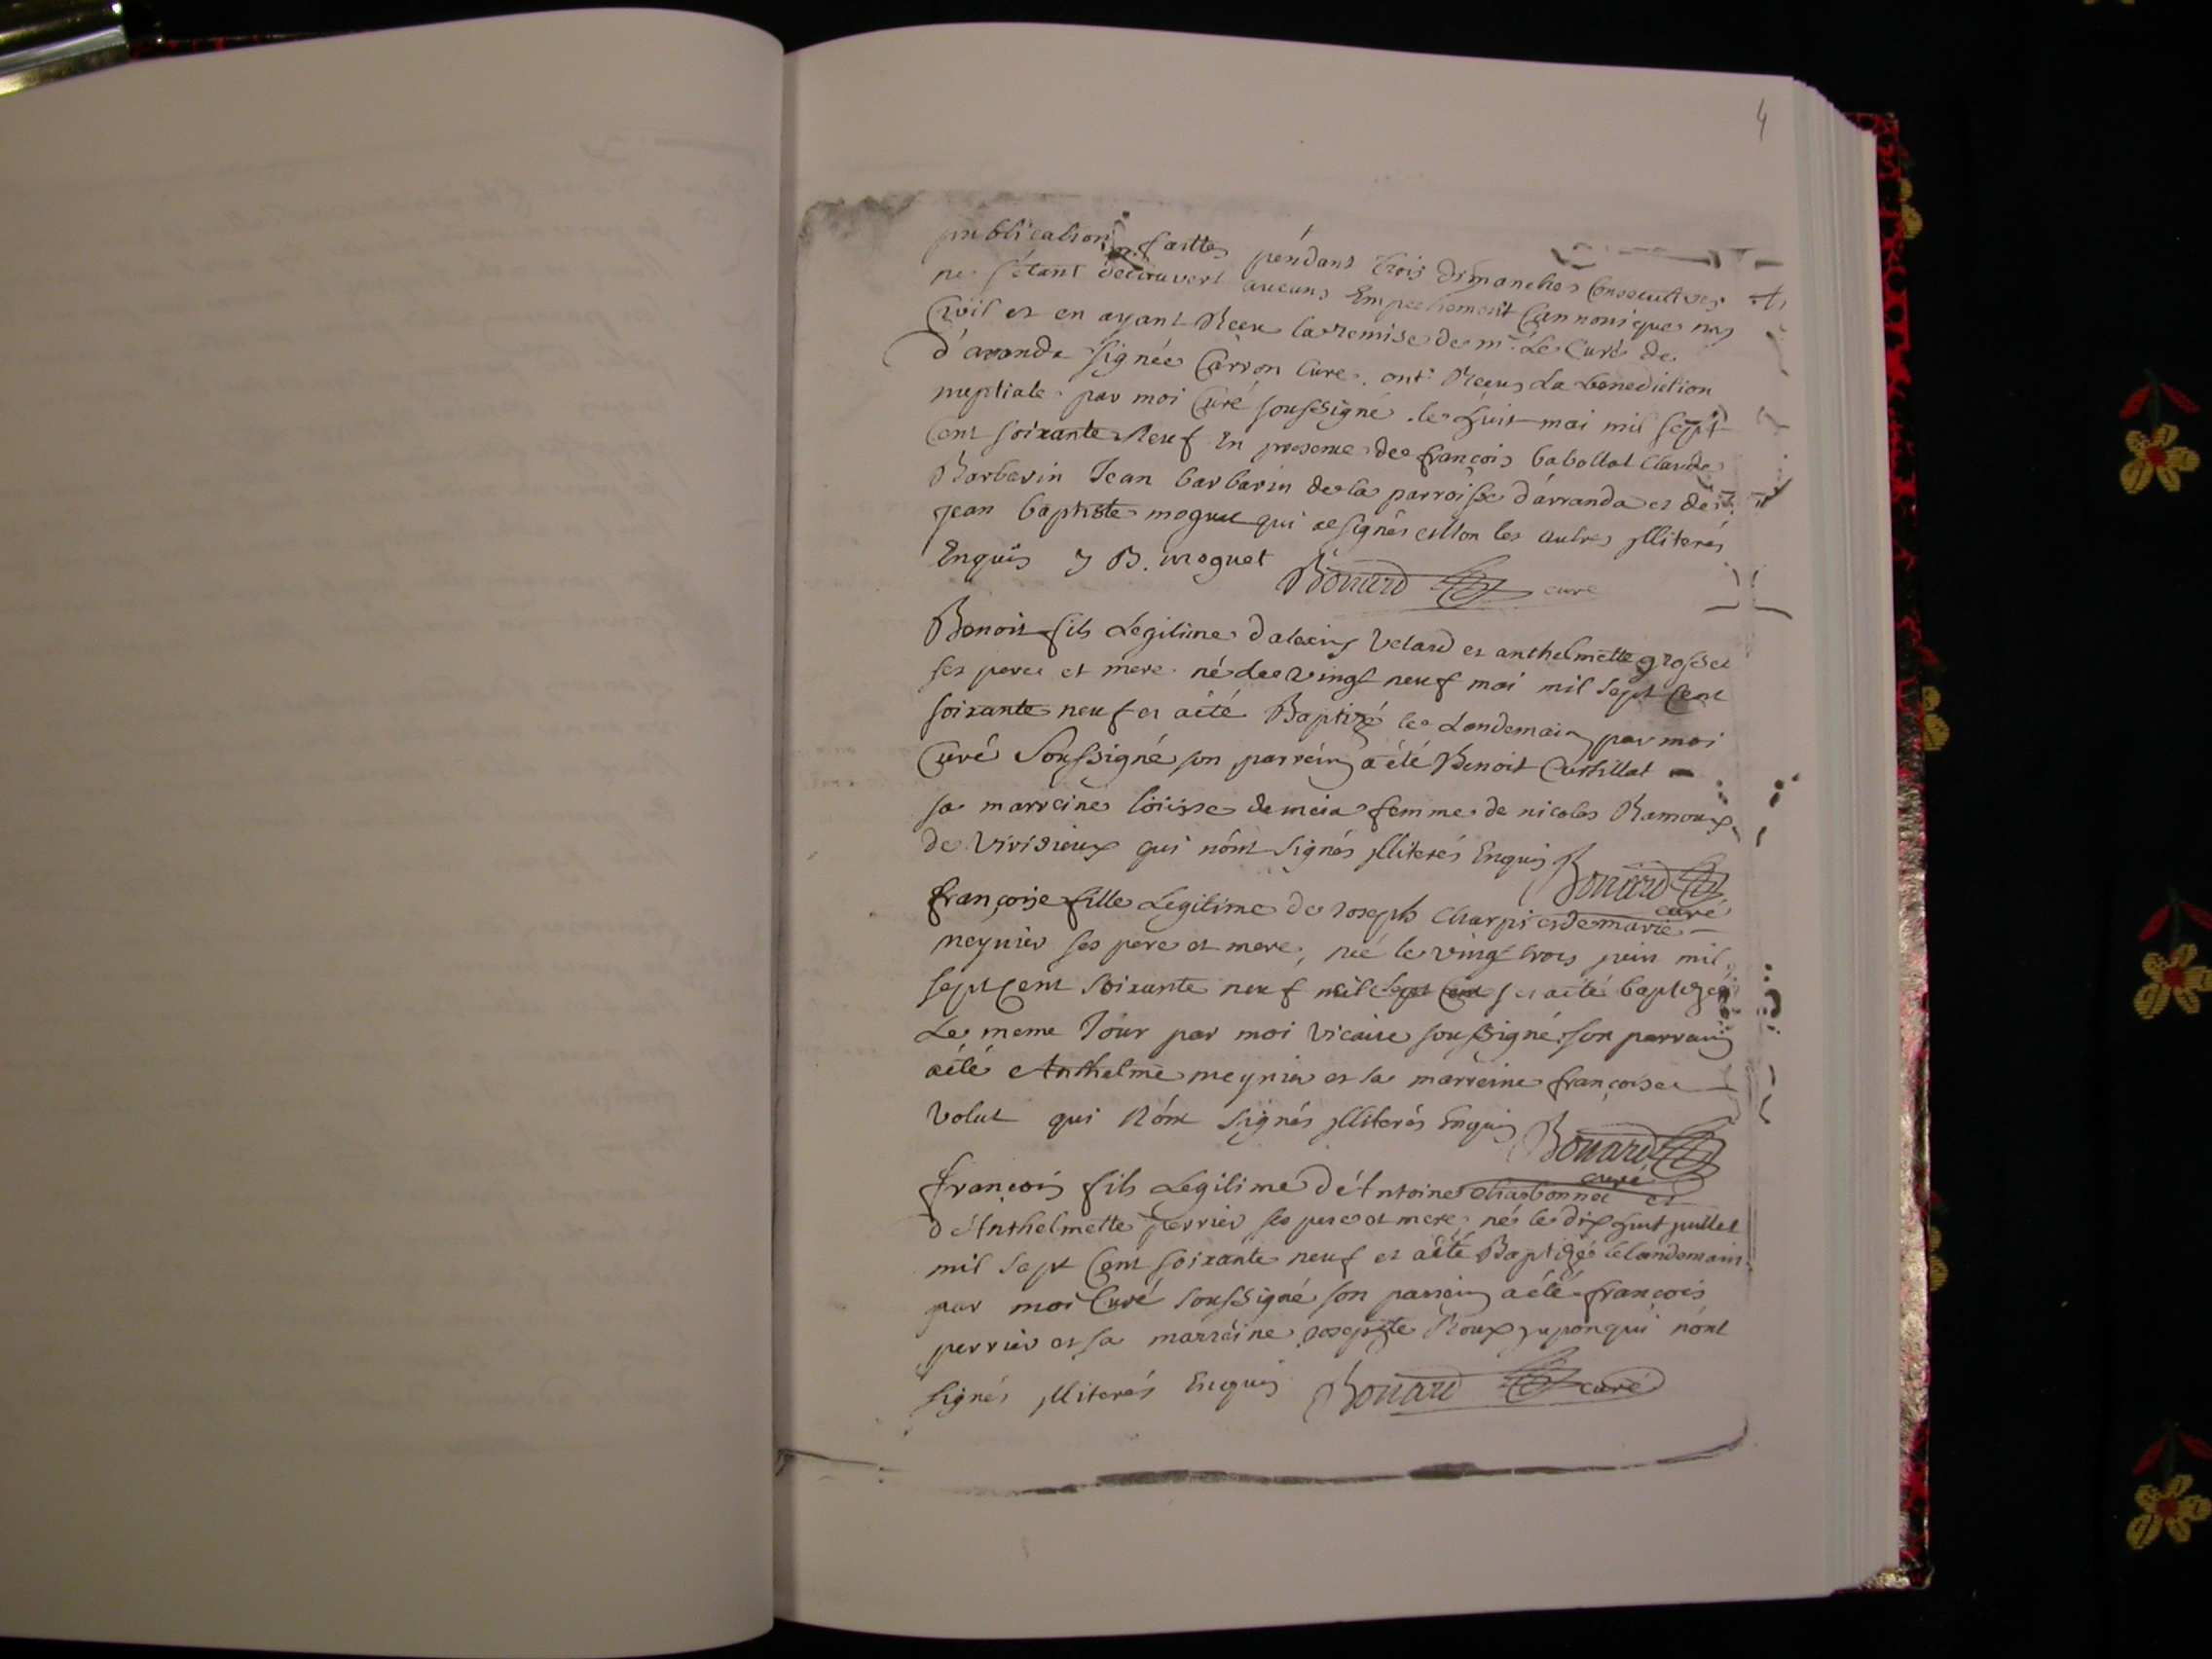 4
publications faittes péndant trois dimanches Consecutives
ne s'étant décauvert aucuns Empechement Cannonique ny
Civil et en ayant Receu la remise de mr. Le Curé de
d'aranda signée Carron Curé. ont Reçus La benediction
nuptiale par moi Curé soussigné le huit mai mil sept
Cent soixante Neuf En presence de françois babollat Claude
Barbarin Jean barbarin de la parroisse d'arranda et de
jean baptiste moguet qui a signés et non les autres jlliterés
Enquis J B. moguet Bouard curé
Benoit fils Legitime d'alexis Velard et anthelmette grosset
ses pere et mere né le vingt neuf mai mil sept Cent
soixante neuf et a été Baptizé le Londemain par moi
Curé Soussigné son parrein a été Benoit Custillat
sa marreine loüisse demeia femme de nicolas Ramoux
de Virisieux qui n'ont signés jlliterés Enquis Bouard
curé
françoise fille Legitime de Joseph Charpi et de marie
meynier ses pere et mere, née le vingt trois juin mil
sept Cent soixante neuf mil sept Cent et a été baptizée
Le meme Jour par moi Vicaire soussigné son parrain
a été Anthelme meynier et sa marreine françoise
Volut qui N'ont signés jlliterés Enquis Bouard
curé
françois fils Legitimé d'Antoine Charbonnet et
d'Anthelmette perrier ses pere et mere, né le dix huit juillet
mil sept Cent soixante neuf et a été Baptizé le landemain
par moi Curé soussigné son parrein a été françois
perrier et sa marreine Josepte Roux jupon qui n'ont
signés jlliterés Enquis Bouard curé